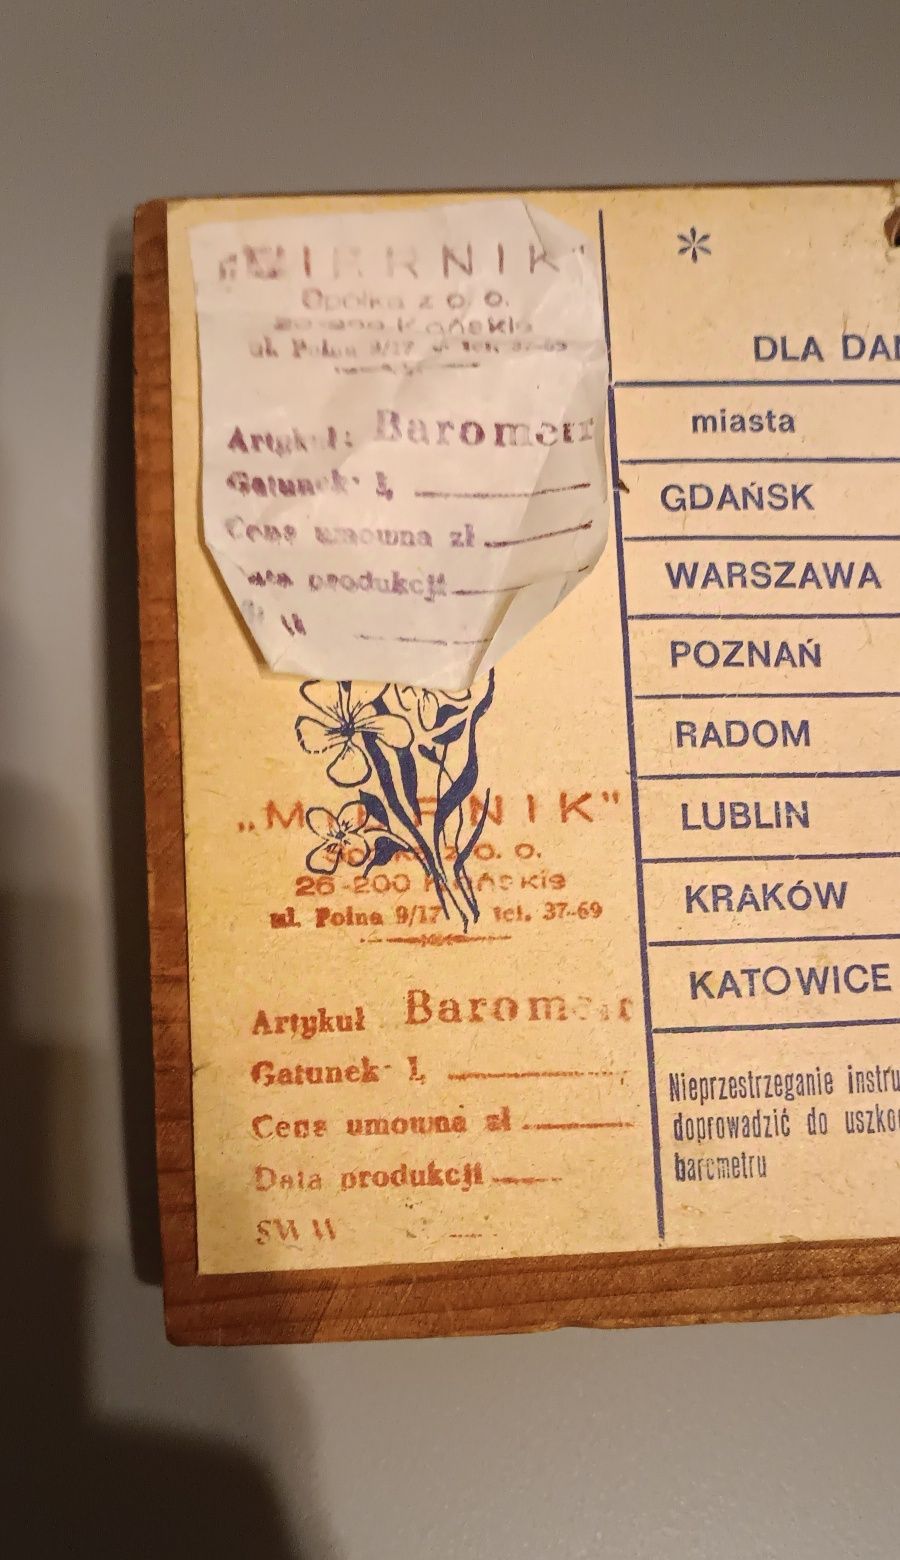 „MIERNIK"
Spółka z o. o.
26-200 Końskie
ul. Polna 9/17 tel. 37-69
Artykuł: Barometr
Gatunek: I,
Cena umowna zł
Data produkcji
„MIERNIK"
Spółka z o. o.
26-200 Końskie
ul. Polna 9/17 tel. 37-69
Artykuł Barometr
Gatunek I,
Cena umowna zł
Data produkcji
SWW
*
DLA DAN
miasta
GDAŃSK
WARSZAWA
POZNAŃ
RADOM
LUBLIN
KRAKÓW
KATOWICE
Nieprzestrzeganie instru
doprowadzić do uszko
barometru